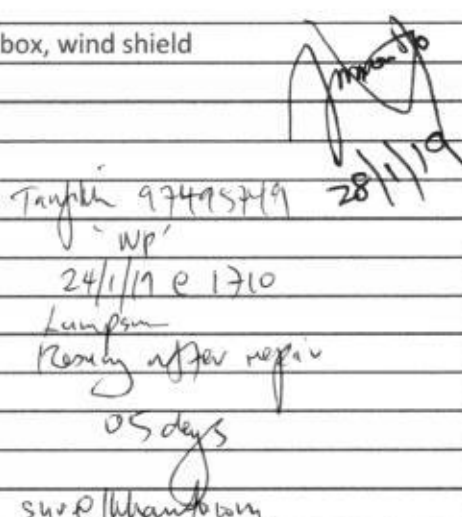 box, wind shield
28/1/19
97495749
'WP'
24/1/19 @ 1710
Lumpsum
Resurvey after repair
05 days